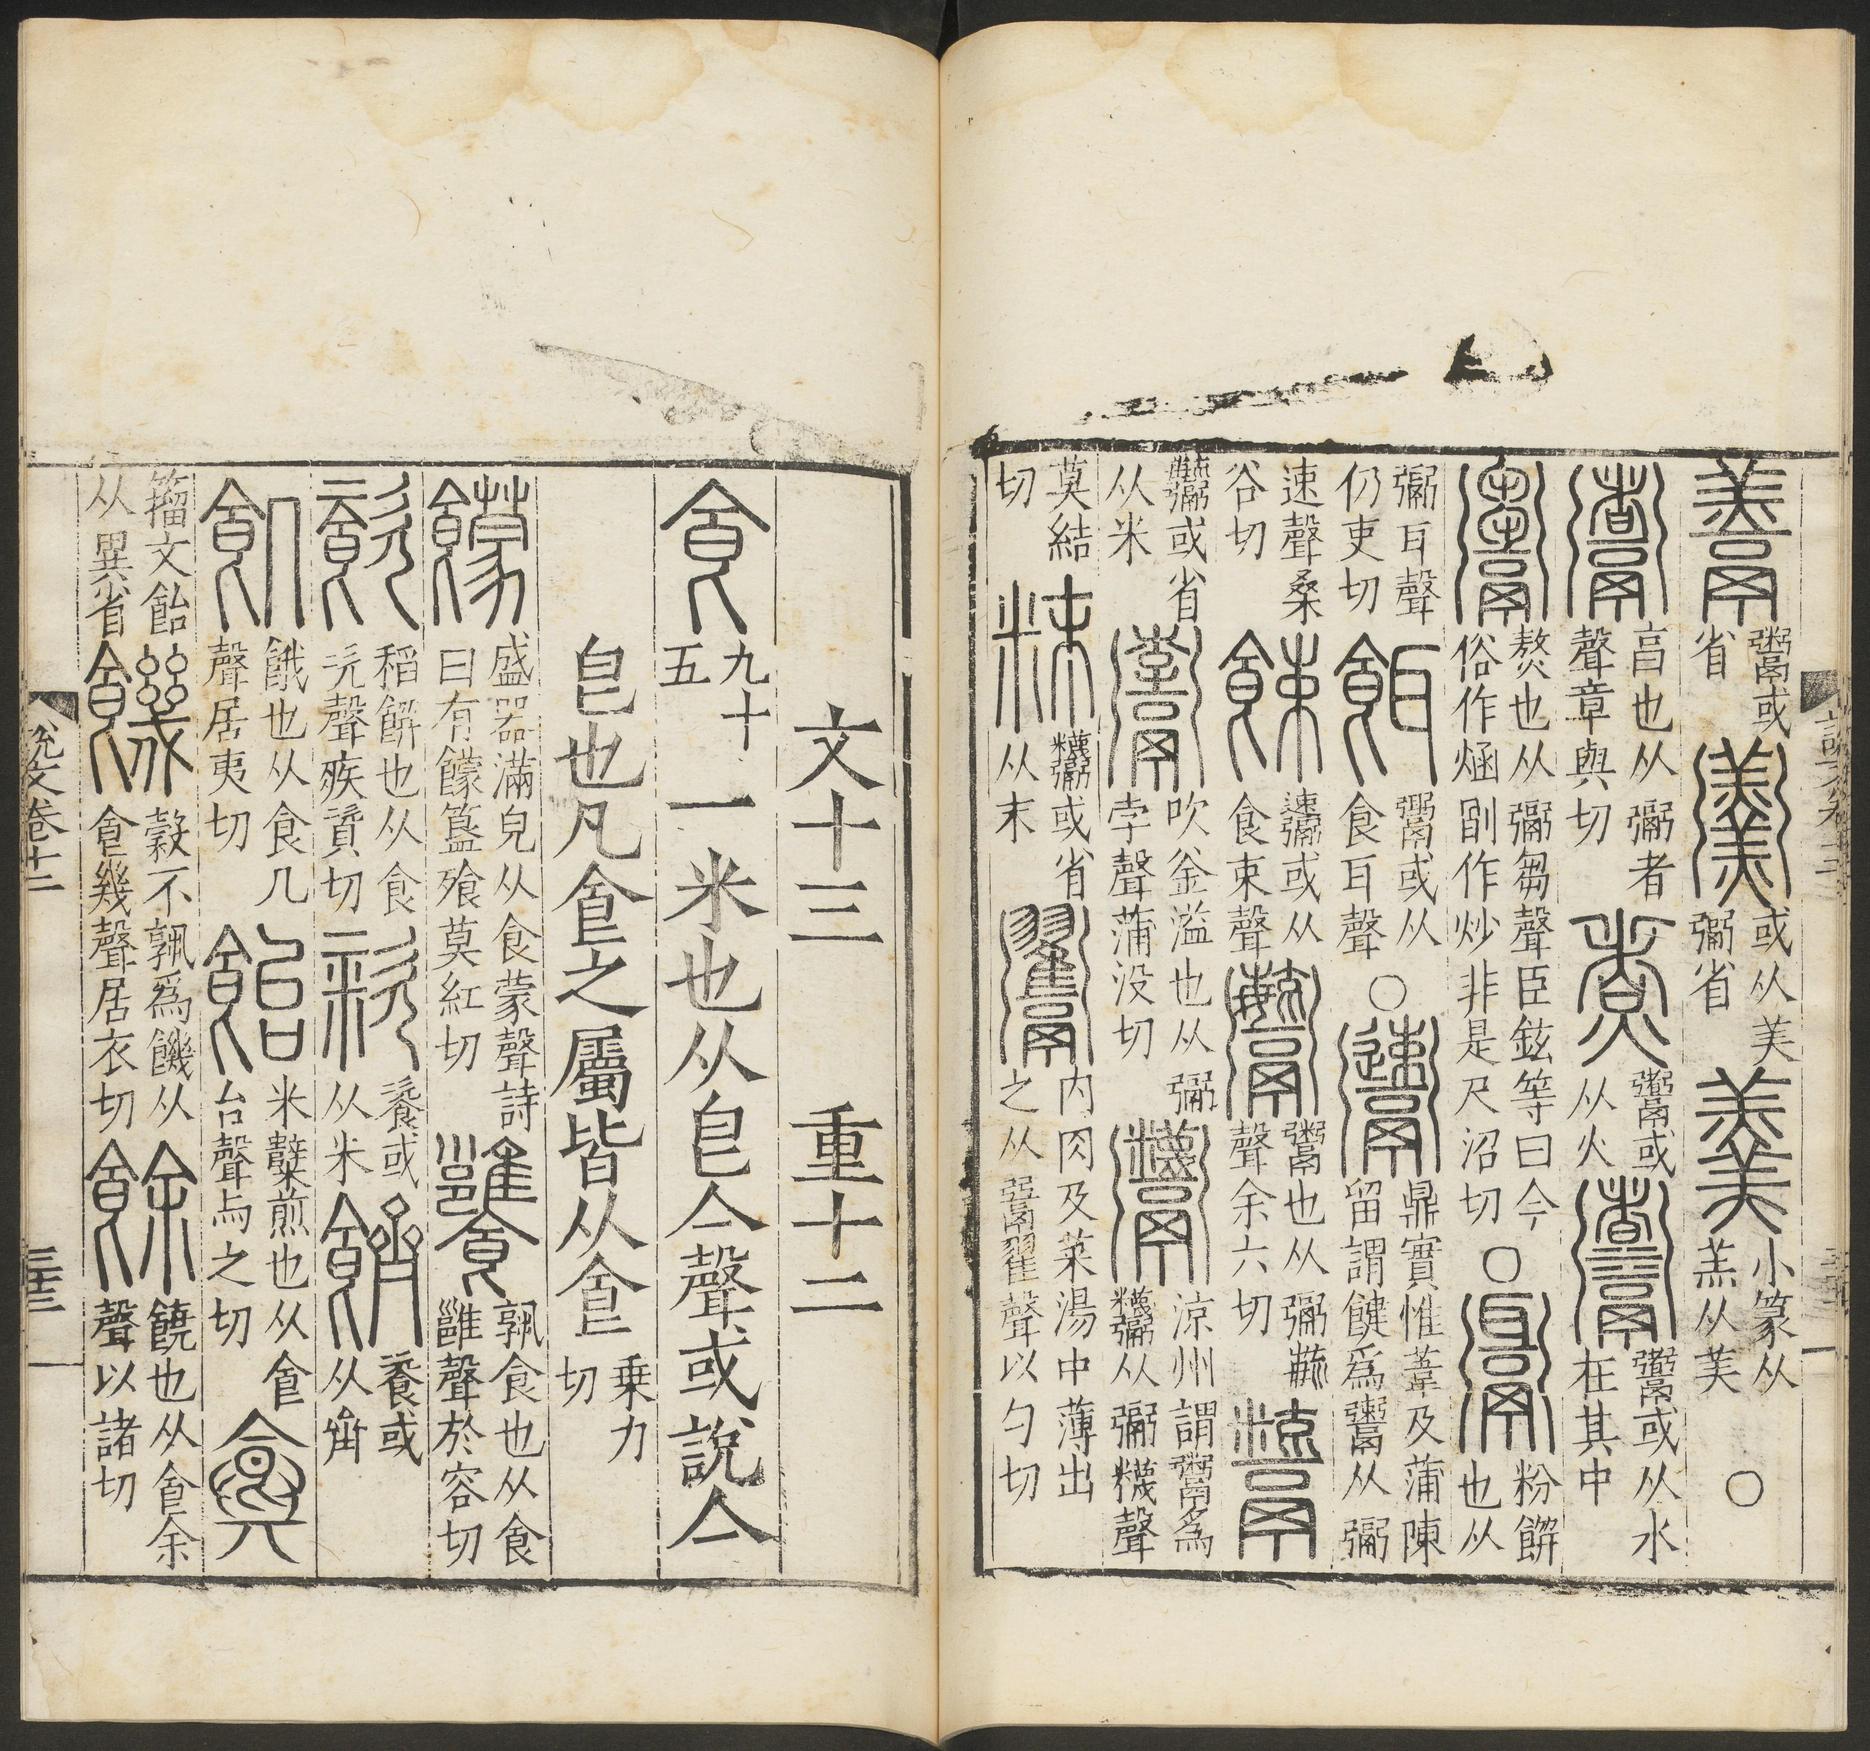 𩱧 鬻或省 𩱋 或从美𢐀省 羹 小篆从羔从美 ○
𩱰 亯也从𢐀者聲章與切 煮 鬻或从火 𩱰 鬻或从水在其中
𩱦 熬也从𢐀芻聲臣鉉等曰今俗作煼別作炒非是尺沼切 ○ 𩱓 粉餅也从
𢐀耳聲仍吏切 餌 鬻或从食耳聲 ○ 𩱴 鼎實惟葦及蒲陳留謂鍵爲鬻从𢐀
速聲桑谷切 餗 𩱴或从食束聲 𩱲 鬻也从𢐀毓聲余六切
𩱲或省从米 𩱙 吹釜溢也从𢐀孛聲蒲没切 𩱷 涼州謂鬻爲𩱷从𢐀糔聲
莫結切 粖 𩱷或省从末 𩱳 内肉及菜湯中薄出之从𩰲翟聲以勺切
文十三 重十二
食 九十五 一米也从皀亼聲或說亼
皀也凡食之屬皆从食 乗力切
饛 盛器滿皃从食蒙聲詩曰有饛簋飱莫紅切 饔 孰食也从食雝聲於容切
餈 稻餅也从食次聲疾資切 粢 餈或从米 䭣 餈或从齊
飢 餓也从食几聲居夷切 飴 米糱煎也从食台聲与之切
籀文飴从異省 饑 穀不孰爲饑从食幾聲居衣切 餘 饒也从食余聲以諸切
說文卷十二 三十三